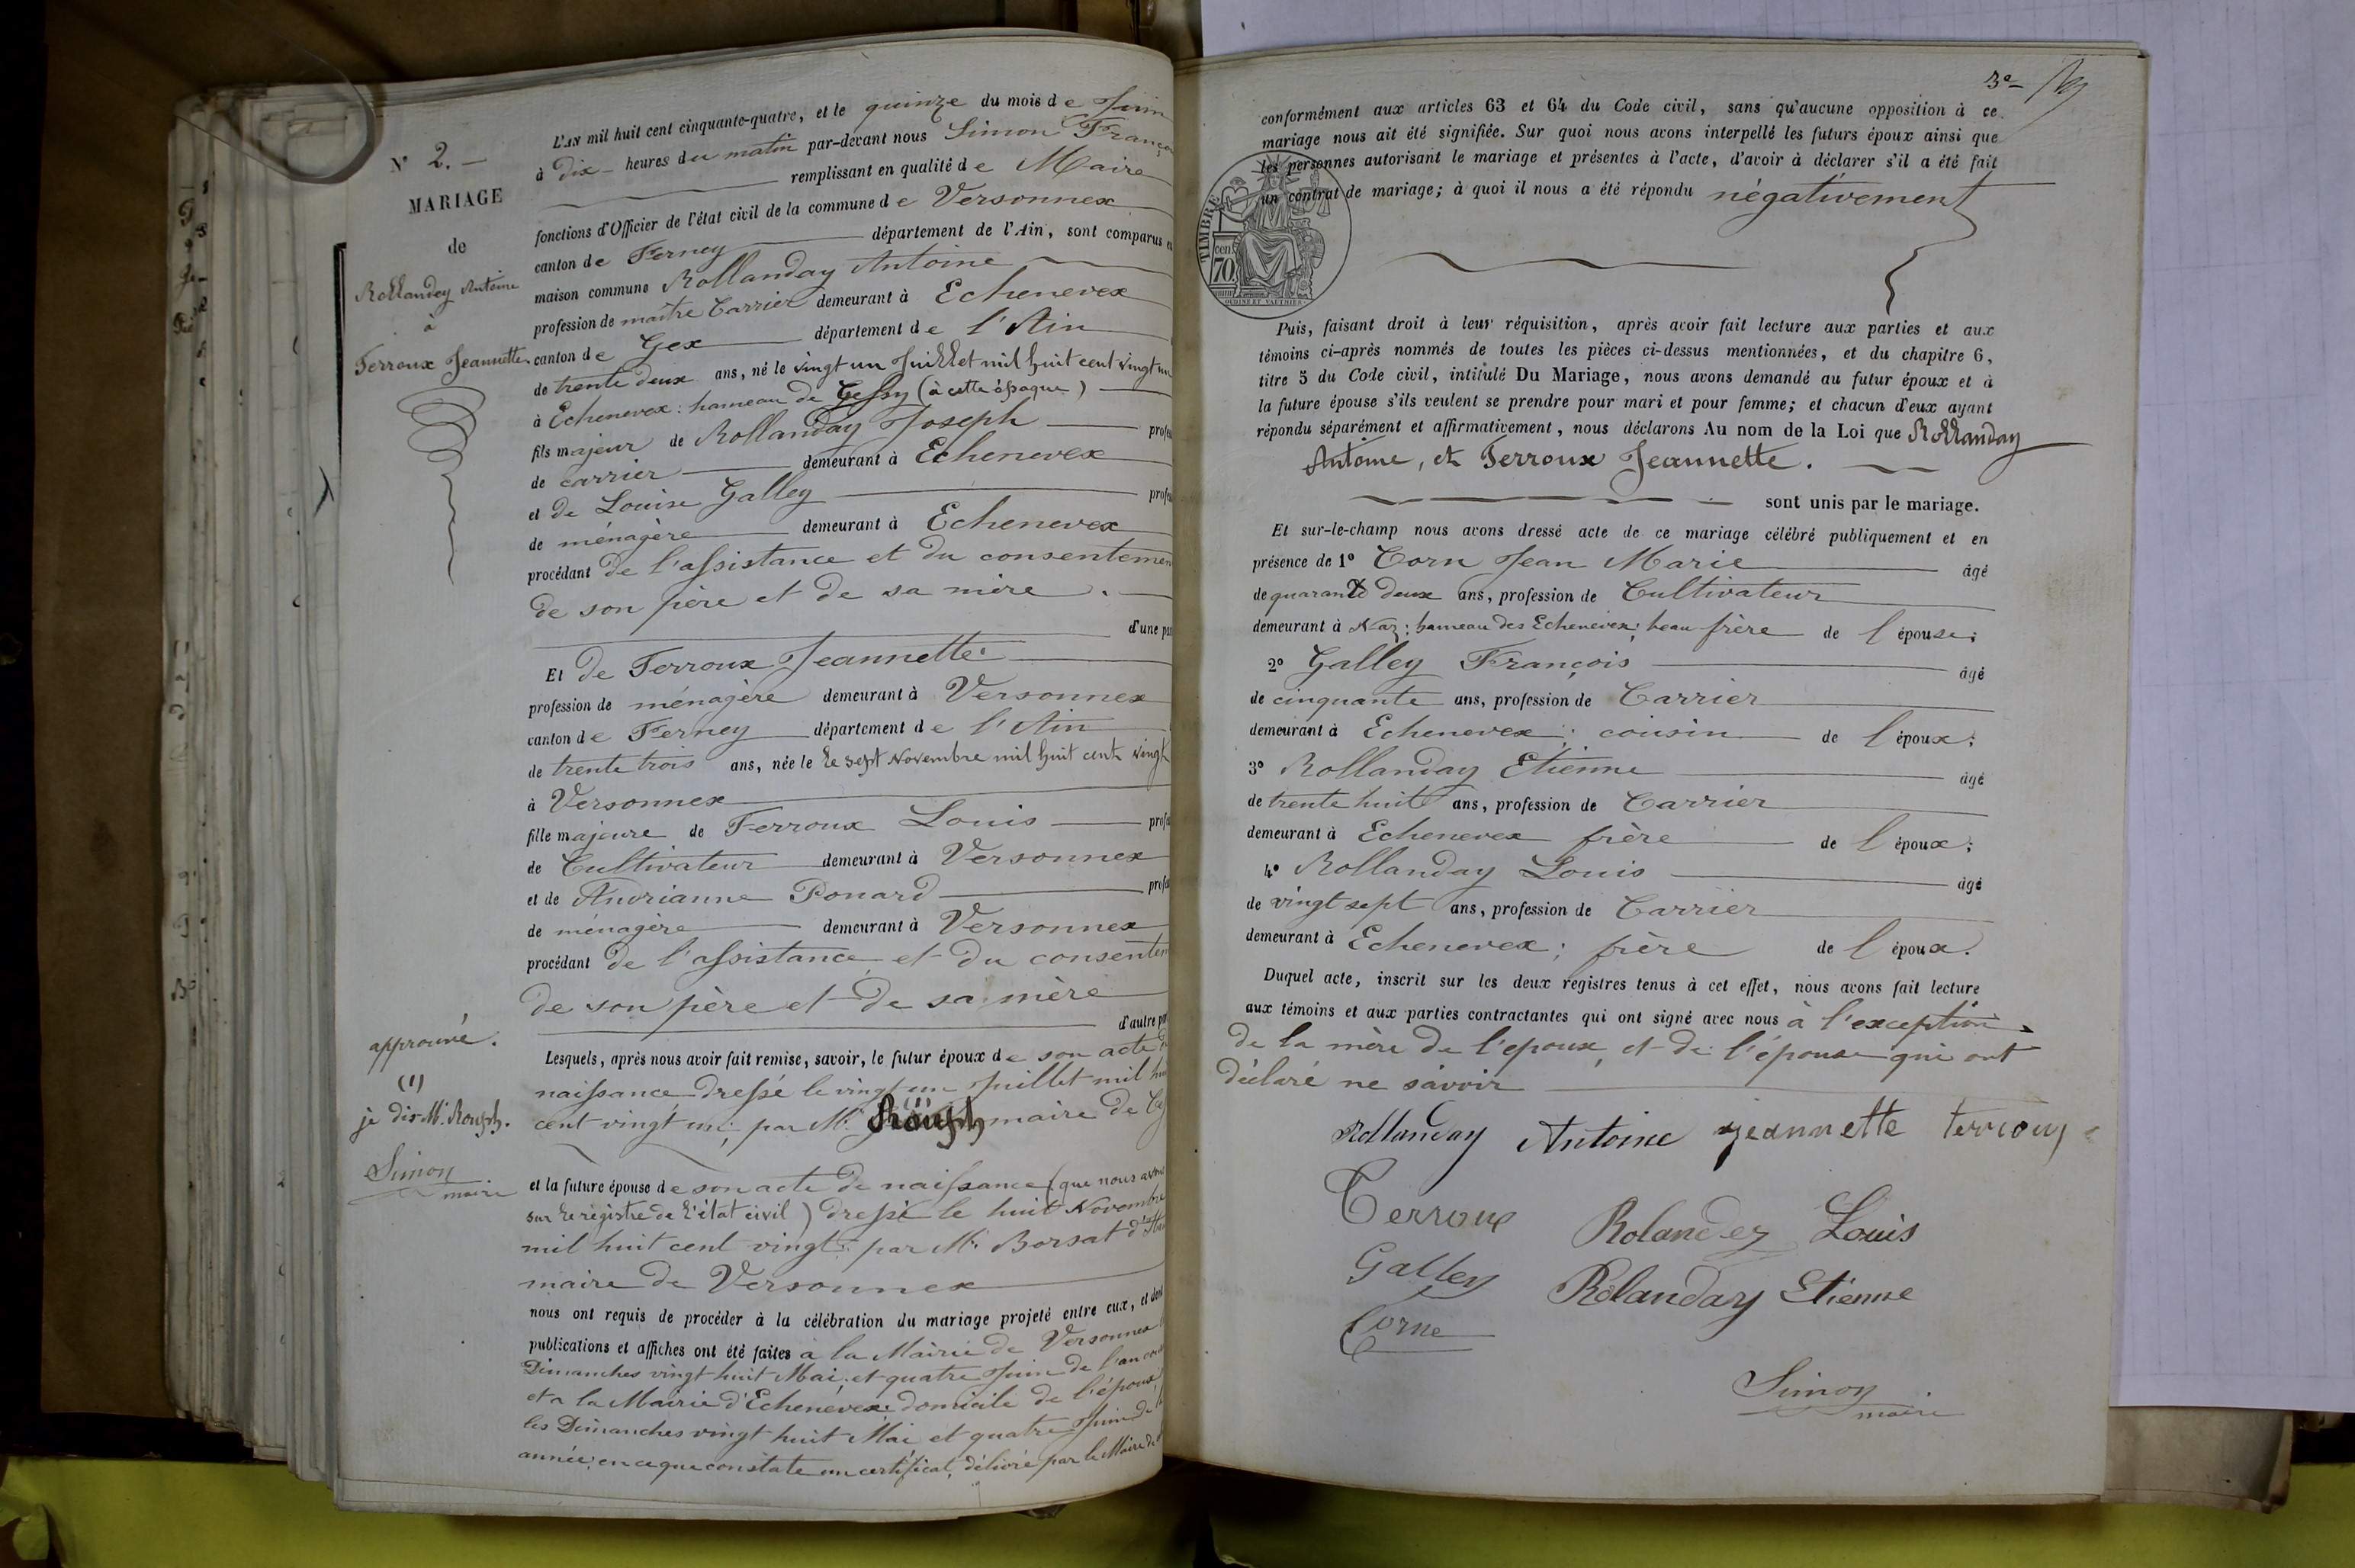 N° 2. —
MARIAGE
de
Rollandey Antoine
à
Ferroux Jeannette
approuvé.
(1)
je dis Mr. Rouph.
Simon
maire
L'AN mil huit cent cinquante-quatre, et le quinze du mois de Juin
à dix heures du matin par-devant nous Simon Franço
remplissant en qualité de Maire
fonctions d'Officier de l'état civil de la commune de Versonnex
canton de Ferney département de l'Ain, sont comparus en
maison commune Rollanday Antoine
profession de maître Carrier demeurant à Echenevex
canton de Gex département de l'Ain
de trente deux ans, né le vingt un Juillet mil huit cent vingt un
à Echenevex : hameau de (à cette époque)
fils majeur de Rollanday Joseph profes
de carrier demeurant à Echenevex
et de Louise Galley profes
de ménagère demeurant à Echenevex
procédant de l'assistance et du consentemen
de son père et de sa mère.
d'une par
Et de Ferroux Jeannette
profession de ménagère demeurant à Versonnex
canton de Ferney département de l'Ain
de trente trois ans, née le le sept Novembre mil huit cent vingt
à Versonnex
fille majeure de Ferroux Louis profes
de Cultivateur demeurant à Versonnex
et de Andrianne Ponard profes
de ménagère demeurant à Versonnex
procédant de l'assistance et du consentem
de son père et de sa mère
d'autre par
Lesquels, après nous avoir fait remise, savoir, le futur époux de son acte de
naissance dressé le vingt un Juillet mil hui
cent vingt un; par Mr. (1) Rouph maire de
et la future épouse de son acte de naissance (que nous avons
sur le registre de l'état civil) dressé le huit Novembre
mil huit cent vingt; par Mr. Borsat d'
maire de Versonnex
nous ont requis de procéder à la célébration du mariage projeté entre eux, et dont
publications et affiches ont été faites à la Mairie de Versonnex
Dimanches vingt huit Mai, et quatre Juin de l'an
et a la Mairie d'Echenevex domicile de l'époux
les Dimanches vingt huit Mai et quatre Juin de
année; en ce que constate un certificat, délivré par le Maire de
3e
conformément aux articles 63 et 64 du Code civil, sans qu'aucune opposition à ce
mariage nous ait été signifiée. Sur quoi nous avons interpellé les futurs époux ainsi que
les personnes autorisant le mariage et présentes à l'acte, d'avoir à déclarer s'il a été fait
un contrat de mariage; à quoi il nous a été répondu négativement
TIMBRE
cen
70
OUDINE ET VAUTHIER
Puis, faisant droit à leur réquisition, après avoir fait lecture aux parties et aux
témoins ci-après nommés de toutes les pièces ci-dessus mentionnées, et du chapitre 6,
titre 5 du Code civil, intitulé Du Mariage, nous avons demandé au futur époux et à
la future épouse s'ils veulent se prendre pour mari et pour femme; et chacun d'eux ayant
répondu séparément et affirmativement, nous déclarons Au nom de la Loi que Rollanday
Antoine, et Ferroux Jeannette.
sont unis par le mariage.
Et sur-le-champ nous avons dressé acte de ce mariage célébré publiquement et en
présence de 1° Corn Jean Marie âgé
de quarante deux ans, profession de Cultivateur
demeurant à Naz: hameau des Echenevex; beau frère de l'épouse;
2° Galley François âgé
de cinquante ans, profession de Carrier
demeurant à Echenevex; cousin de l'époux;
3° Rollanday Etienne âgé
de trente huit ans, profession de Carrier
demeurant à Echenevex frère de l'époux;
4° Rollanday Louis âgé
de vingt sept ans, profession de Carrier
demeurant à Echenevex; frère de l'époux.
Duquel acte, inscrit sur les deux registres tenus à cet effet, nous avons fait lecture
aux témoins et aux parties contractantes qui ont signé avec nous à l'exception
de la mère de l'epoux, et de l'épouse qui ont
déclaré ne savoir
Rollanday Antoine jeannette terroux
Terroux Rolandez Louis
Galley Rolanday Etienne
Corne
Simon
maire